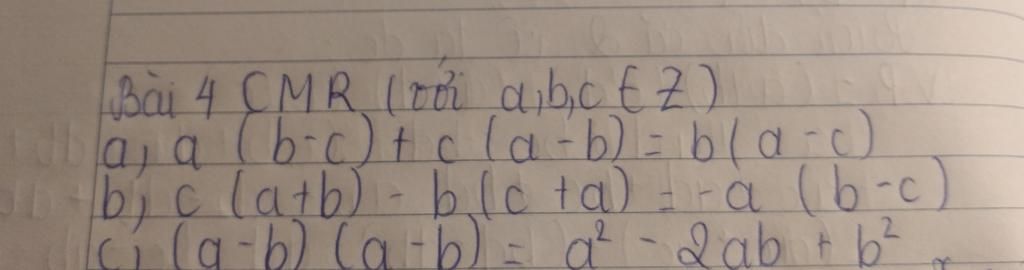 Bài 4 CMR (với a,b,c ∈ Z)
a, a (b-c) + c (a-b) = b(a-c)
b, c (a+b) - b (c+a) = -a (b-c)
c, (a-b) (a-b) = a² - 2ab + b²